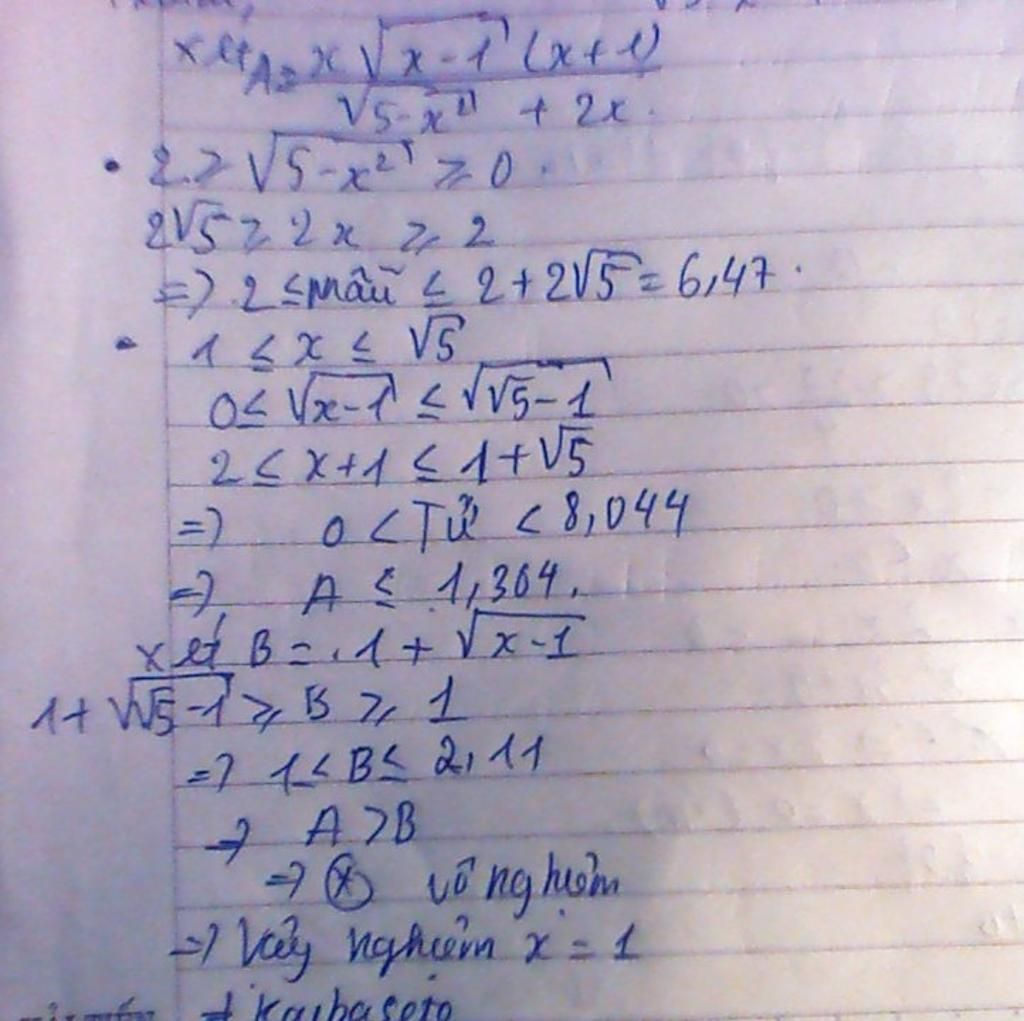 xét A = x√(x-1) (x+1) / (√(5-x²) + 2x)
• 2 ≥ √(5-x²) ≥ 0
2√5 ≥ 2x ≥ 2
=> 2 ≤ mẫu ≤ 2+2√5 = 6,47
• 1 ≤ x ≤ √5
0 ≤ √(x-1) ≤ √(√5-1)
2 ≤ x+1 ≤ 1+√5
=> 0 < Tử < 8,044
=> A ≤ 1,304.
xét B = 1 + √(x-1)
1+√(√5-1) ≥ B ≥ 1
=> 1 ≤ B ≤ 2,11
=> A > B
=> (*) vô nghiệm
=> Vậy nghiệm x = 1